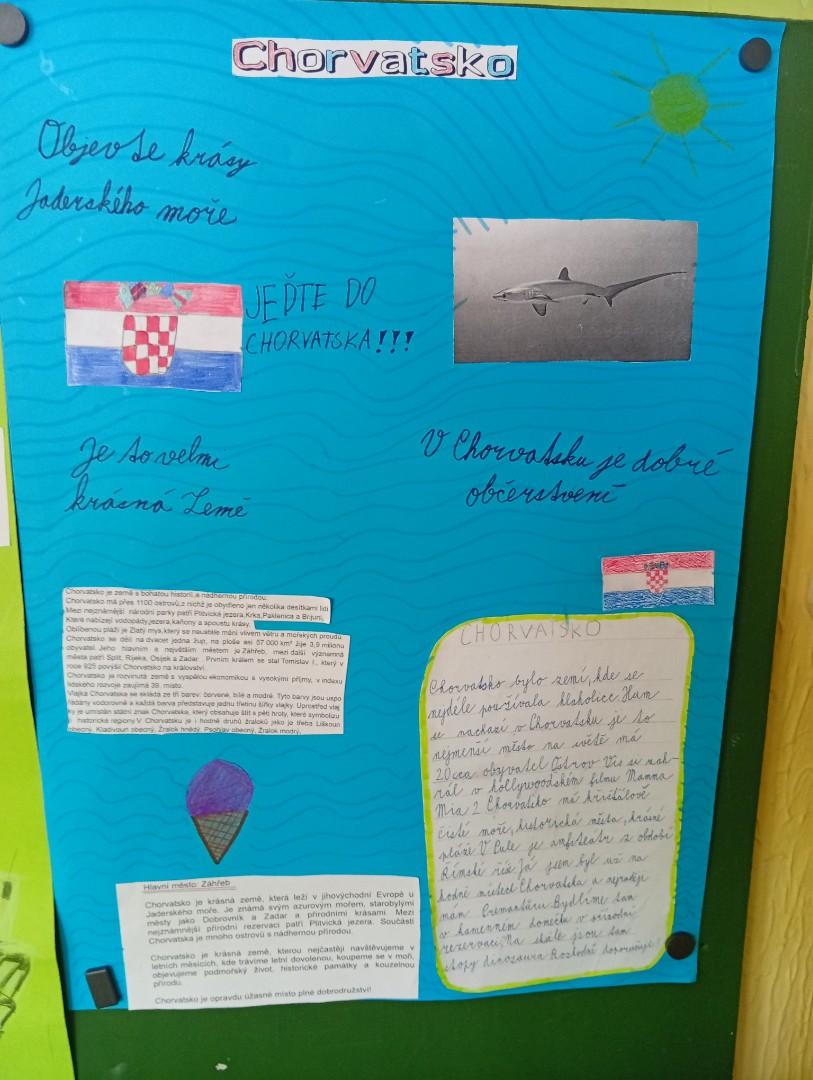 Chorvatsko
Objevte krásy
Jaderského moře
JEĎTE DO
CHORVATSKA!!!
Je to velmi
krásná Země
V Chorvatsku je dobré
občerstvení
Chorvatsko je země s bohatou historií a nádhernou přírodou.
Chorvatsko má přes 1100 ostrovů,z nichž je obydleno jen několika desítkami lidí
Mezi nejznámější národní parky patří Plitvická jezera,Krka,Paklenica a Brijuni,
Které nabízejí vodopády,jezera,kaňony a spoustu krásy.
Oblíbenou pláží je Zlatý mys,který se neustále mění vlivem větru a mořských proudů
Chorvatsko se dělí na dvacet jedna žup, na ploše asi 57 000 km² žije 3,9 milionu
obyvatel. Jeho hlavním a největším městem je Záhřeb, mezi další významná
města patří Split, Rijeka, Osijek a Zadar. Prvním králem se stal Tomislav I., který v
roce 925 povýšil Chorvatsko na království.
Chorvatsko je rozvinutá země s vyspělou ekonomikou a vysokými příjmy, v indexu
lidského rozvoje zaujímá 39. místo.
Vlajka Chorvatska se skládá ze tří barev: červené, bílé a modré. Tyto barvy jsou uspo
řádány vodorovně a každá barva představuje jednu třetinu šířky vlajky. Uprostřed vlaj
ky je umístěn státní znak Chorvatska, který obsahuje štít s pěti hroty, které symbolizu
jí historické regiony.V Chorvatsku je i hodně druhů žraloků jako je třeba Liškoun
obecný, Kladivoun obecný, Žralok hnědý, Psohlav obecný, Žralok modrý.
Hlavní město: Záhřeb
Chorvatsko je krásná země, která leží v jihovýchodní Evropě u
Jaderského moře. Je známá svým azurovým mořem, starobylými
městy jako Dobrovník a Zadar a přírodními krásami. Mezi
nejznámější přírodní rezervaci patří Plitvická jezera. Součástí
Chorvatska je mnoho ostrovů s nádhernou přírodou.
Chorvatsko je krásná země, kterou nejčastěji navštěvujeme v
letních měsících, kde trávíme letní dovolenou, koupeme se v moři,
objevujeme podmořský život, historické památky a kouzelnou
přírodu.
Chorvatsko je opravdu úžasné místo plné dobrodružství!
CHORVATSKO
Chorvatsko bylo zemí, kde se
nejdéle používala hlaholice. Hum
se nachází v Chorvatsku je to
nejmenší místo na světě má
20 cca obyvatel Ostrov Vis se nah-
rál v hollywoodském filmu Mamma
Mia 2 Chorvatsko má křišťálově
čisté moře, historická města, krásné
pláže V Pule je amfiteátr z období
Římské říše Já jsem byl už na
hodně místech Chorvatska a nejraději
mám Premanturu Bydlíme tam
v kamenném domečku v přírodní
rezervaci. Na skále jsou tam
stopy dinosaura Rozhodně doporučuji!